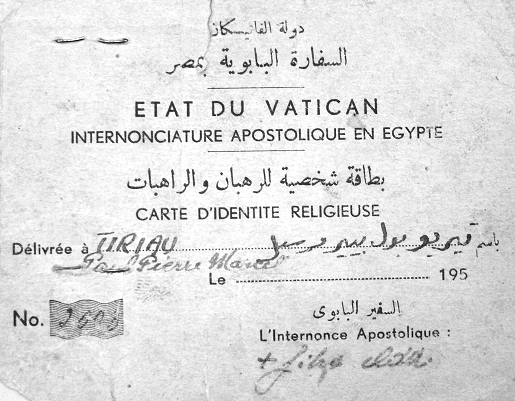 دولة الفاتيكان
السفارة البابوية بمصر
ETAT DU VATICAN
INTERNONCIATURE APOSTOLIQUE EN EGYPTE
بطاقة شخصية للرهبان والراهبات
CARTE D'IDENTITE RELIGIEUSE
Délivrée à TIRIAU تيريو بول بيير مرسل باسم
Paul Pierre Marcel
Le ........ 195
No.
السفير البابوى
L'Internonce Apostolique :